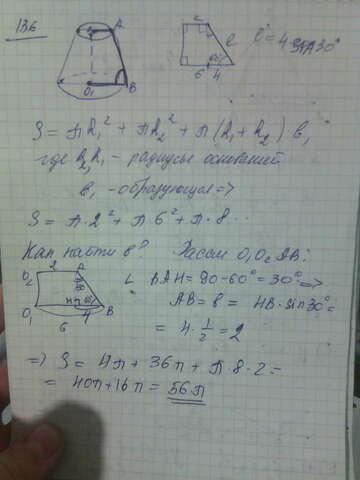 136
A
B
O₁
2
6 4
60°
l
l = 4 sin 30°
S = πR₁² + πR₂² + π(R₁ + R₂) l₁,
где R₂R₁ - радиусы оснований
l₁ - образующая =>
S = π·2² + π6² + π·8 ...
Как найти l? Рассм O₁O₂AB:
O₂ 2 A
O₁ H 4 B
6
∠ BAH = 90 - 60° = 30° =>
AB = l = HB · sin 30° =
= 4 · 1/2 = 2
=> S = 4π + 36π + π·8·2 =
= 40π + 16π = 56π